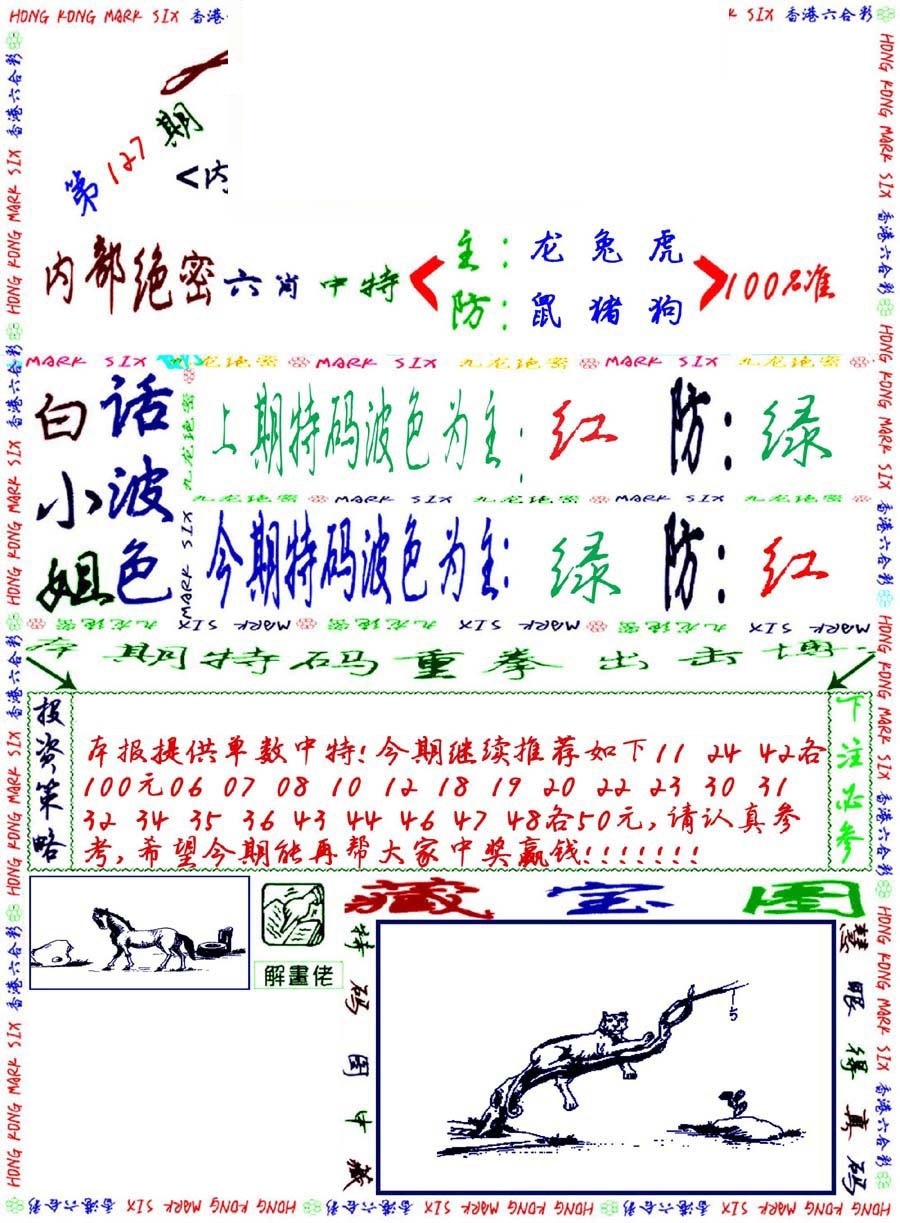 HONG KONG MARK SIX 香港
K SIX 香港六合彩
第127期
<内
内部绝密六肖中特
主：龙兔虎
防：鼠猪狗
100%准
MARK SIX 九龙绝密 MARK SIX 九龙绝密 MARK SIX 九龙绝密
白话
小波
姐色
上期特码波色为主：红 防：绿
九龙绝密 MARK SIX 九龙绝密 MARK SIX 九龙绝密
今期特码波色为主：绿 防：红
九龙绝密 MARK SIX 九龙绝密 MARK SIX 九龙绝密 SIX MARK
期特码重拳出击
投资策略
本报提供单数中特!今期继续推荐如下11 24 42各
100元06 07 08 10 12 18 19 20 22 23 30 31
32 34 35 36 43 44 46 47 48各50元,请认真参
考,希望今期能再帮大家中奖赢钱!!!!!!!
下注必参
解畫佬
藏宝图
特码图中藏
5
慧眼得真码
HONG KONG MARK SIX 香港六合彩 HONG KONG MARK SIX 香港六合彩 HONG KONG MARK SIX 香港六合彩